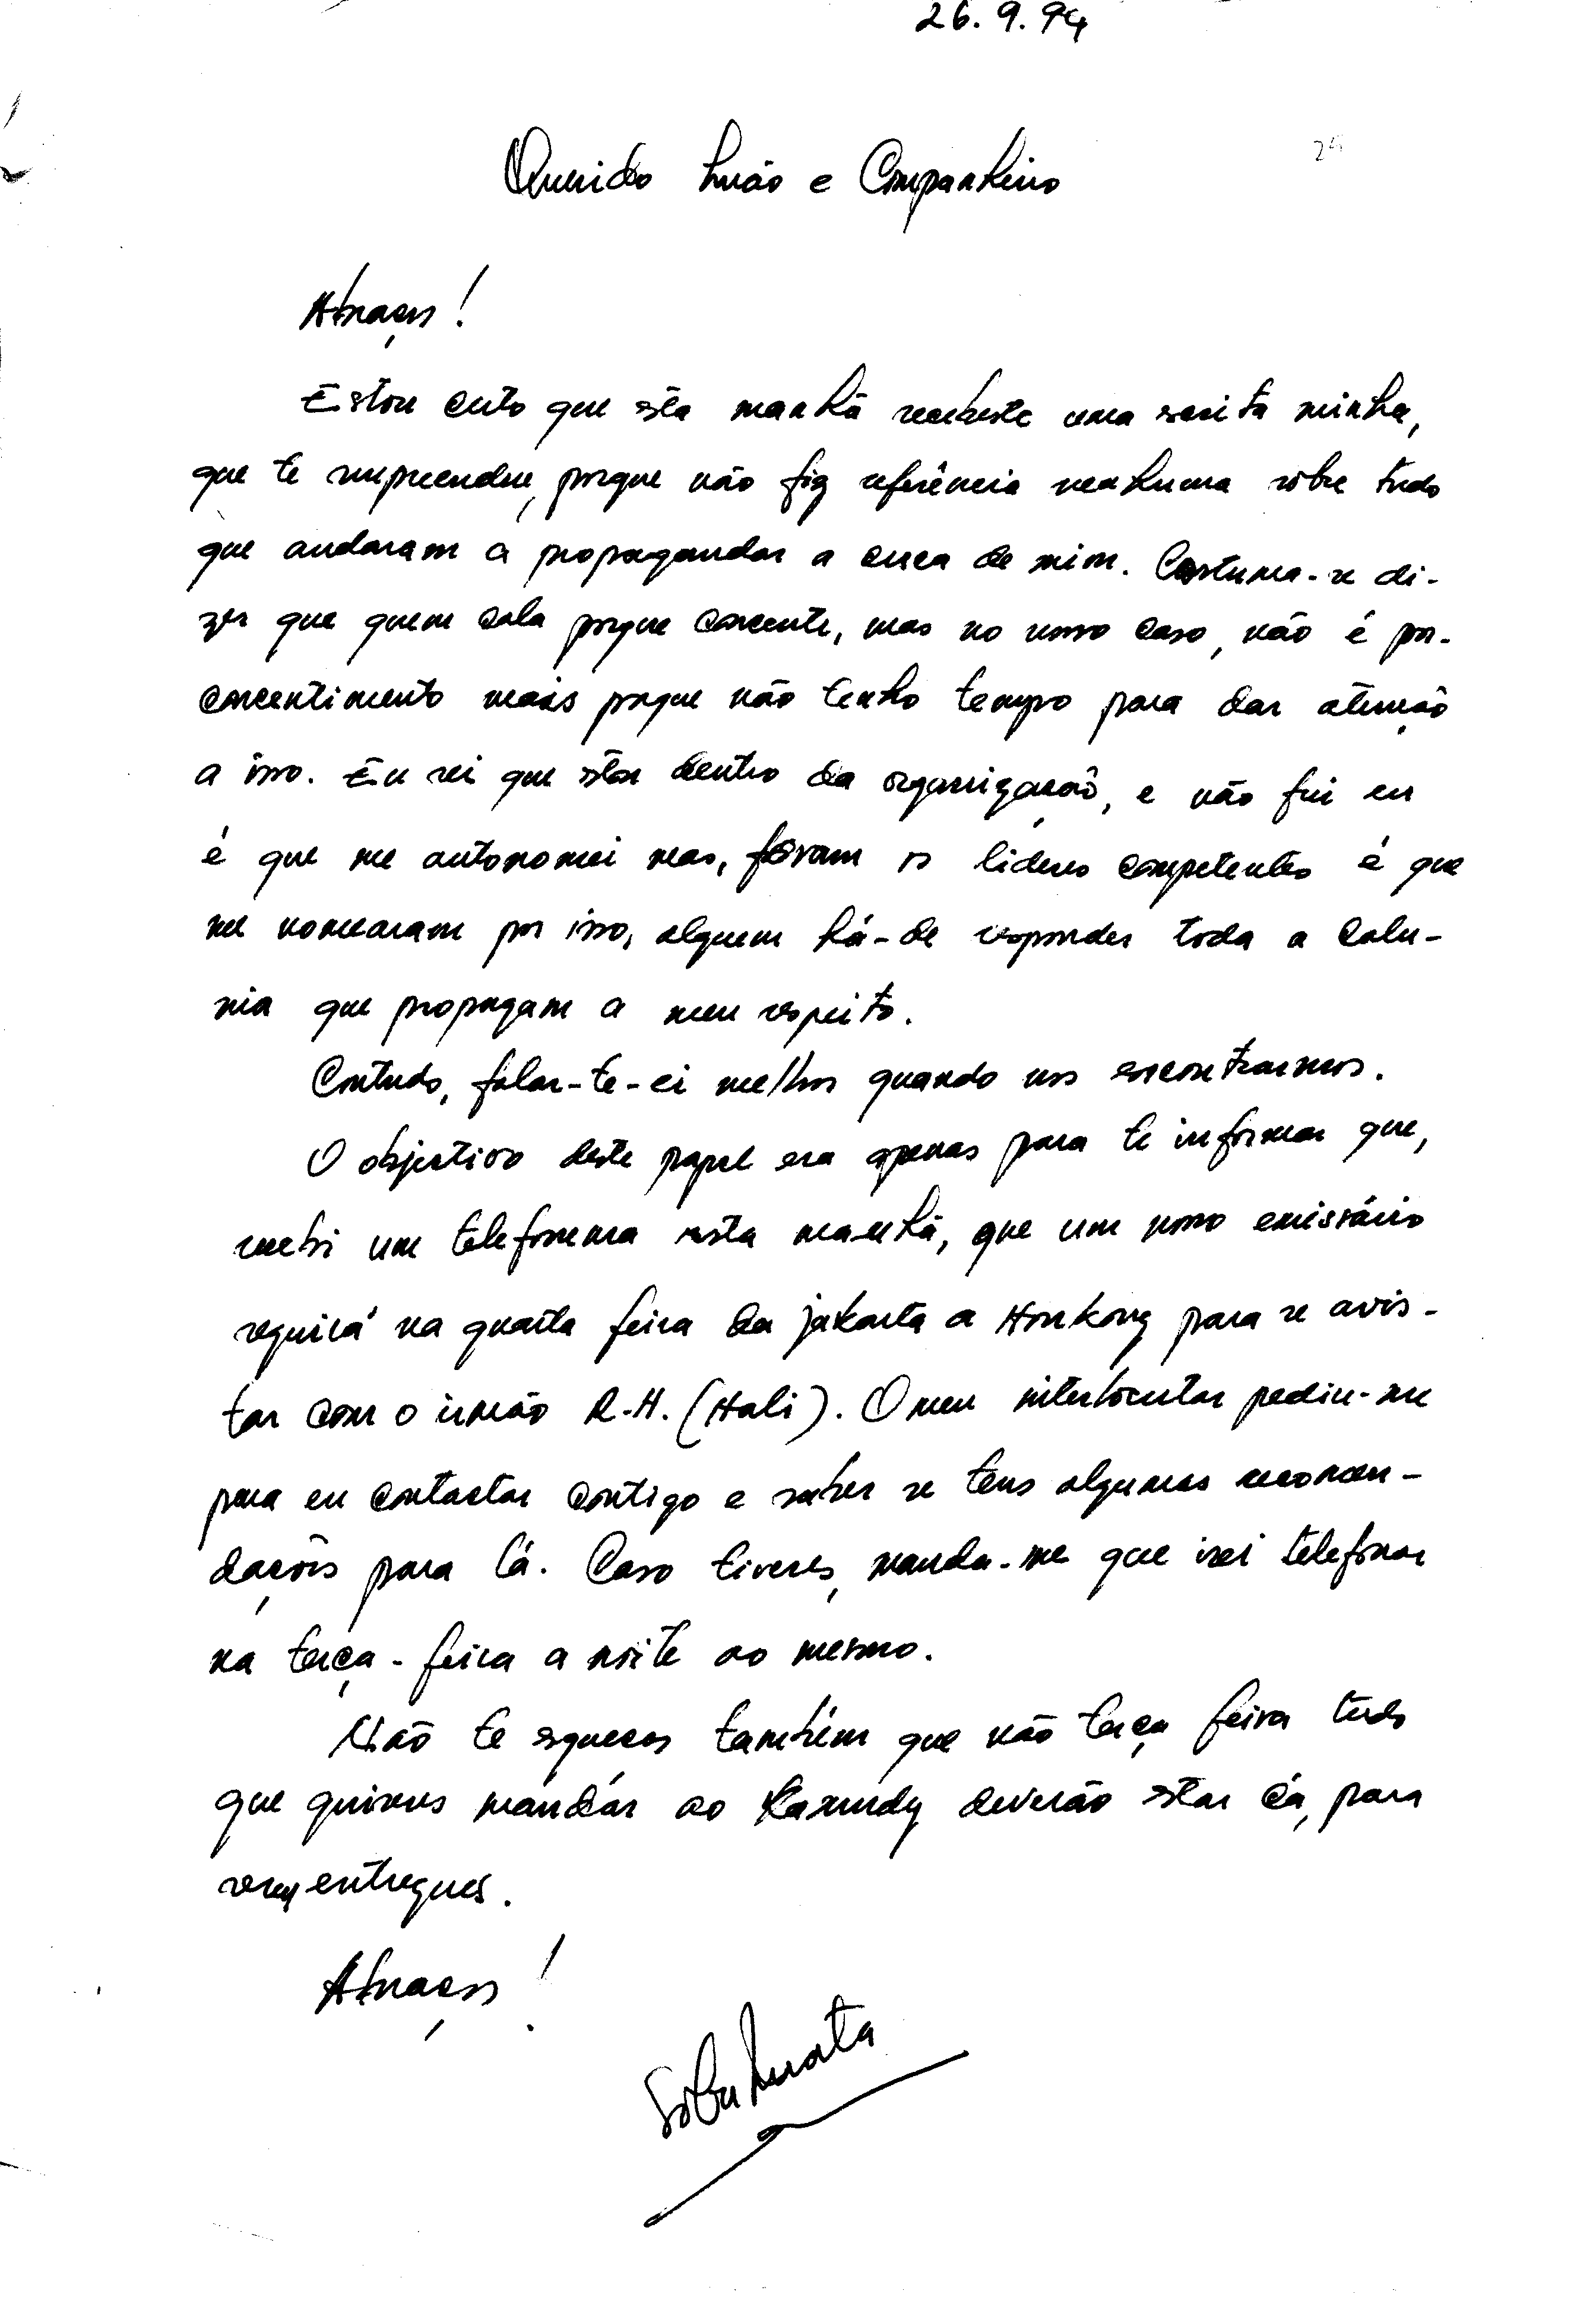 26.9.94
24
Querido Irmão e Companheiro
Abraços!
Estou certo que esta manhã recebeste uma escrita minha,
que te surpreendeu, porque não fiz referência nenhuma sôbre tudo
que andaram a propagandar a cerca de mim. Costuma-se di-
zer que quem cala porque concente, mas no nosso caso, não é por-
concentimento mais porque não tenho tempo para dar atenção
a isso. Eu sei que estou dentro da organização, e não fui eu
é que me autonomei mas, foram os lideres competentes é que
me nomearam por isso, alguem há-de responder toda a calu-
nia que propagam a meu respeito.
Contudo, falar-te-ei melhor quando nos encontrarmos.
O objectivo deste papel era apenas para te informar que,
recebi um telefonema esta manhã, que um nosso emissário
seguirá na quarta feira da jakarta a Honkong para se avis-
tar com o irmão R.H. (Hali). O meu interlocutor pediu-me
para eu contactar contigo e saber se tens algumas recomen-
dações para lá. Caso tiveres, manda-me que irei telefonar
na terça-feira a noite ao mesmo.
Não te esqueças também que não terça feira tudo
que quiseres mandár ao Kaxundy deverão estar cá, para
serem entregues.
Abraços!